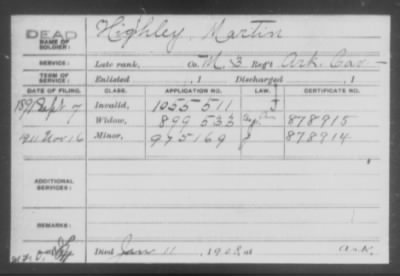 DEAD
NAME OF SOLDIER: Highley, Martin
SERVICE: Late rank, Co. M. 3 Reg't Ark. Cav
TERM OF SERVICE: Enlisted , 1 Discharged , 1
DATE OF FILING. CLASS. APPLICATION NO. LAW. CERTIFICATE NO.
1891 Sept 7 Invalid, 1055511 J
Widow, 899533 878915
1911 Nov 16 Minor, 975169 878914
ADDITIONAL SERVICES:
REMARKS:
Died Jan 11, 1908, at Ark.